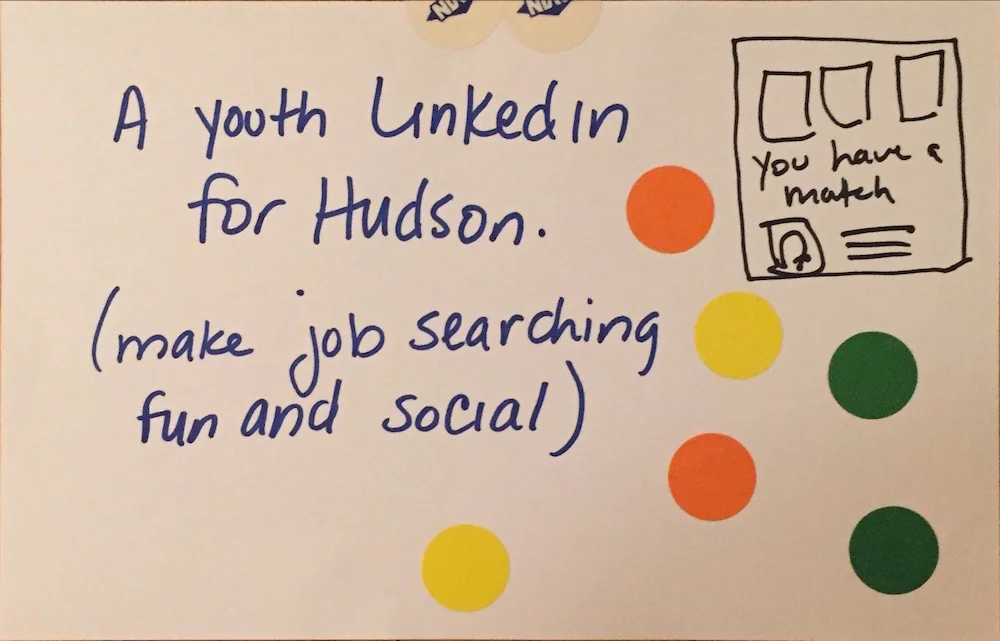 A youth Linkedin
for Hudson.
(make job searching
fun and social)
You have a
match